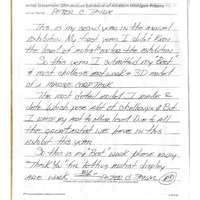 Artist Statement: 25th Annual Exhibition of Art by Michigan Prisoners
PETER C TAYLOR
This is my second year in the annual
exhibition. My first year I didn't know
the level of artist enter the exhibition.
So this year I submitted my "Best"
& most challenge art work = 3D model
of a MARINE CORP TANK
The most detailed model I made to
date. Which was alot of challenges. But
I press my art to other level. Due to All
the great artist we have in this
exhibit this year.
So this is my "Best" work please enjoy.
Thank You for letting me start display
ARE work PETER C TAYLOR